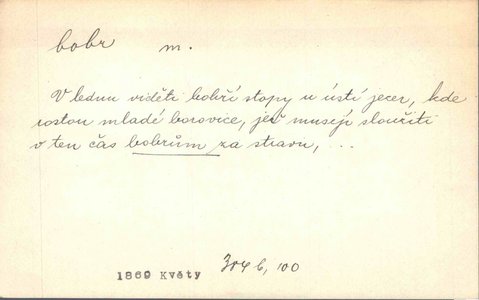 bobr m.
V lednu viděti bobří stopy u ústí jezer, kde
rostou mladé borovice, jež musejí sloužiti
v ten čas bobrům za stravu, ...
1869 Květy 304 b, 100